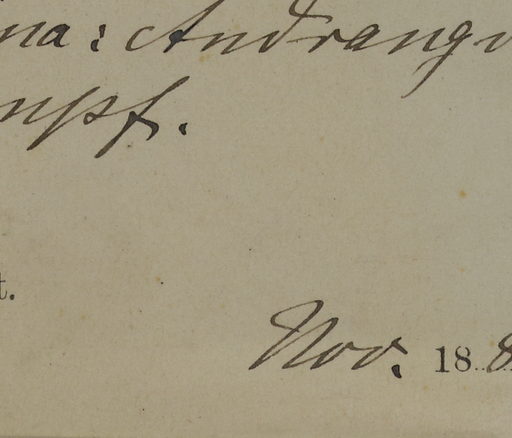 na: Andrang
mpf.
t.
Nov. 188